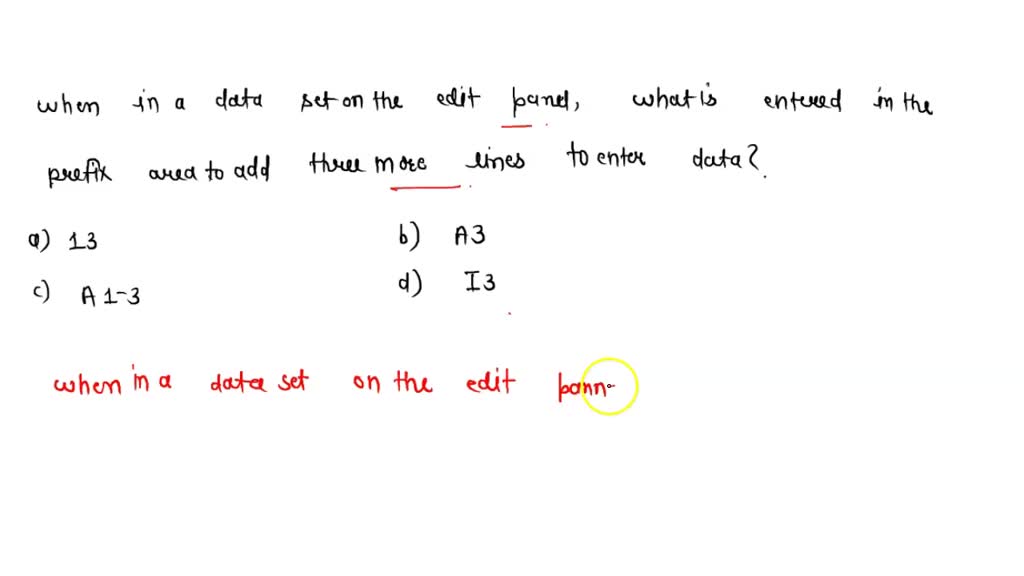 when in a data set on the edit panel, what is entered in the
prefix area to add three more lines to enter data?
a) 13 b) A3
c) A 1-3 d) I3
when in a data set on the edit pann